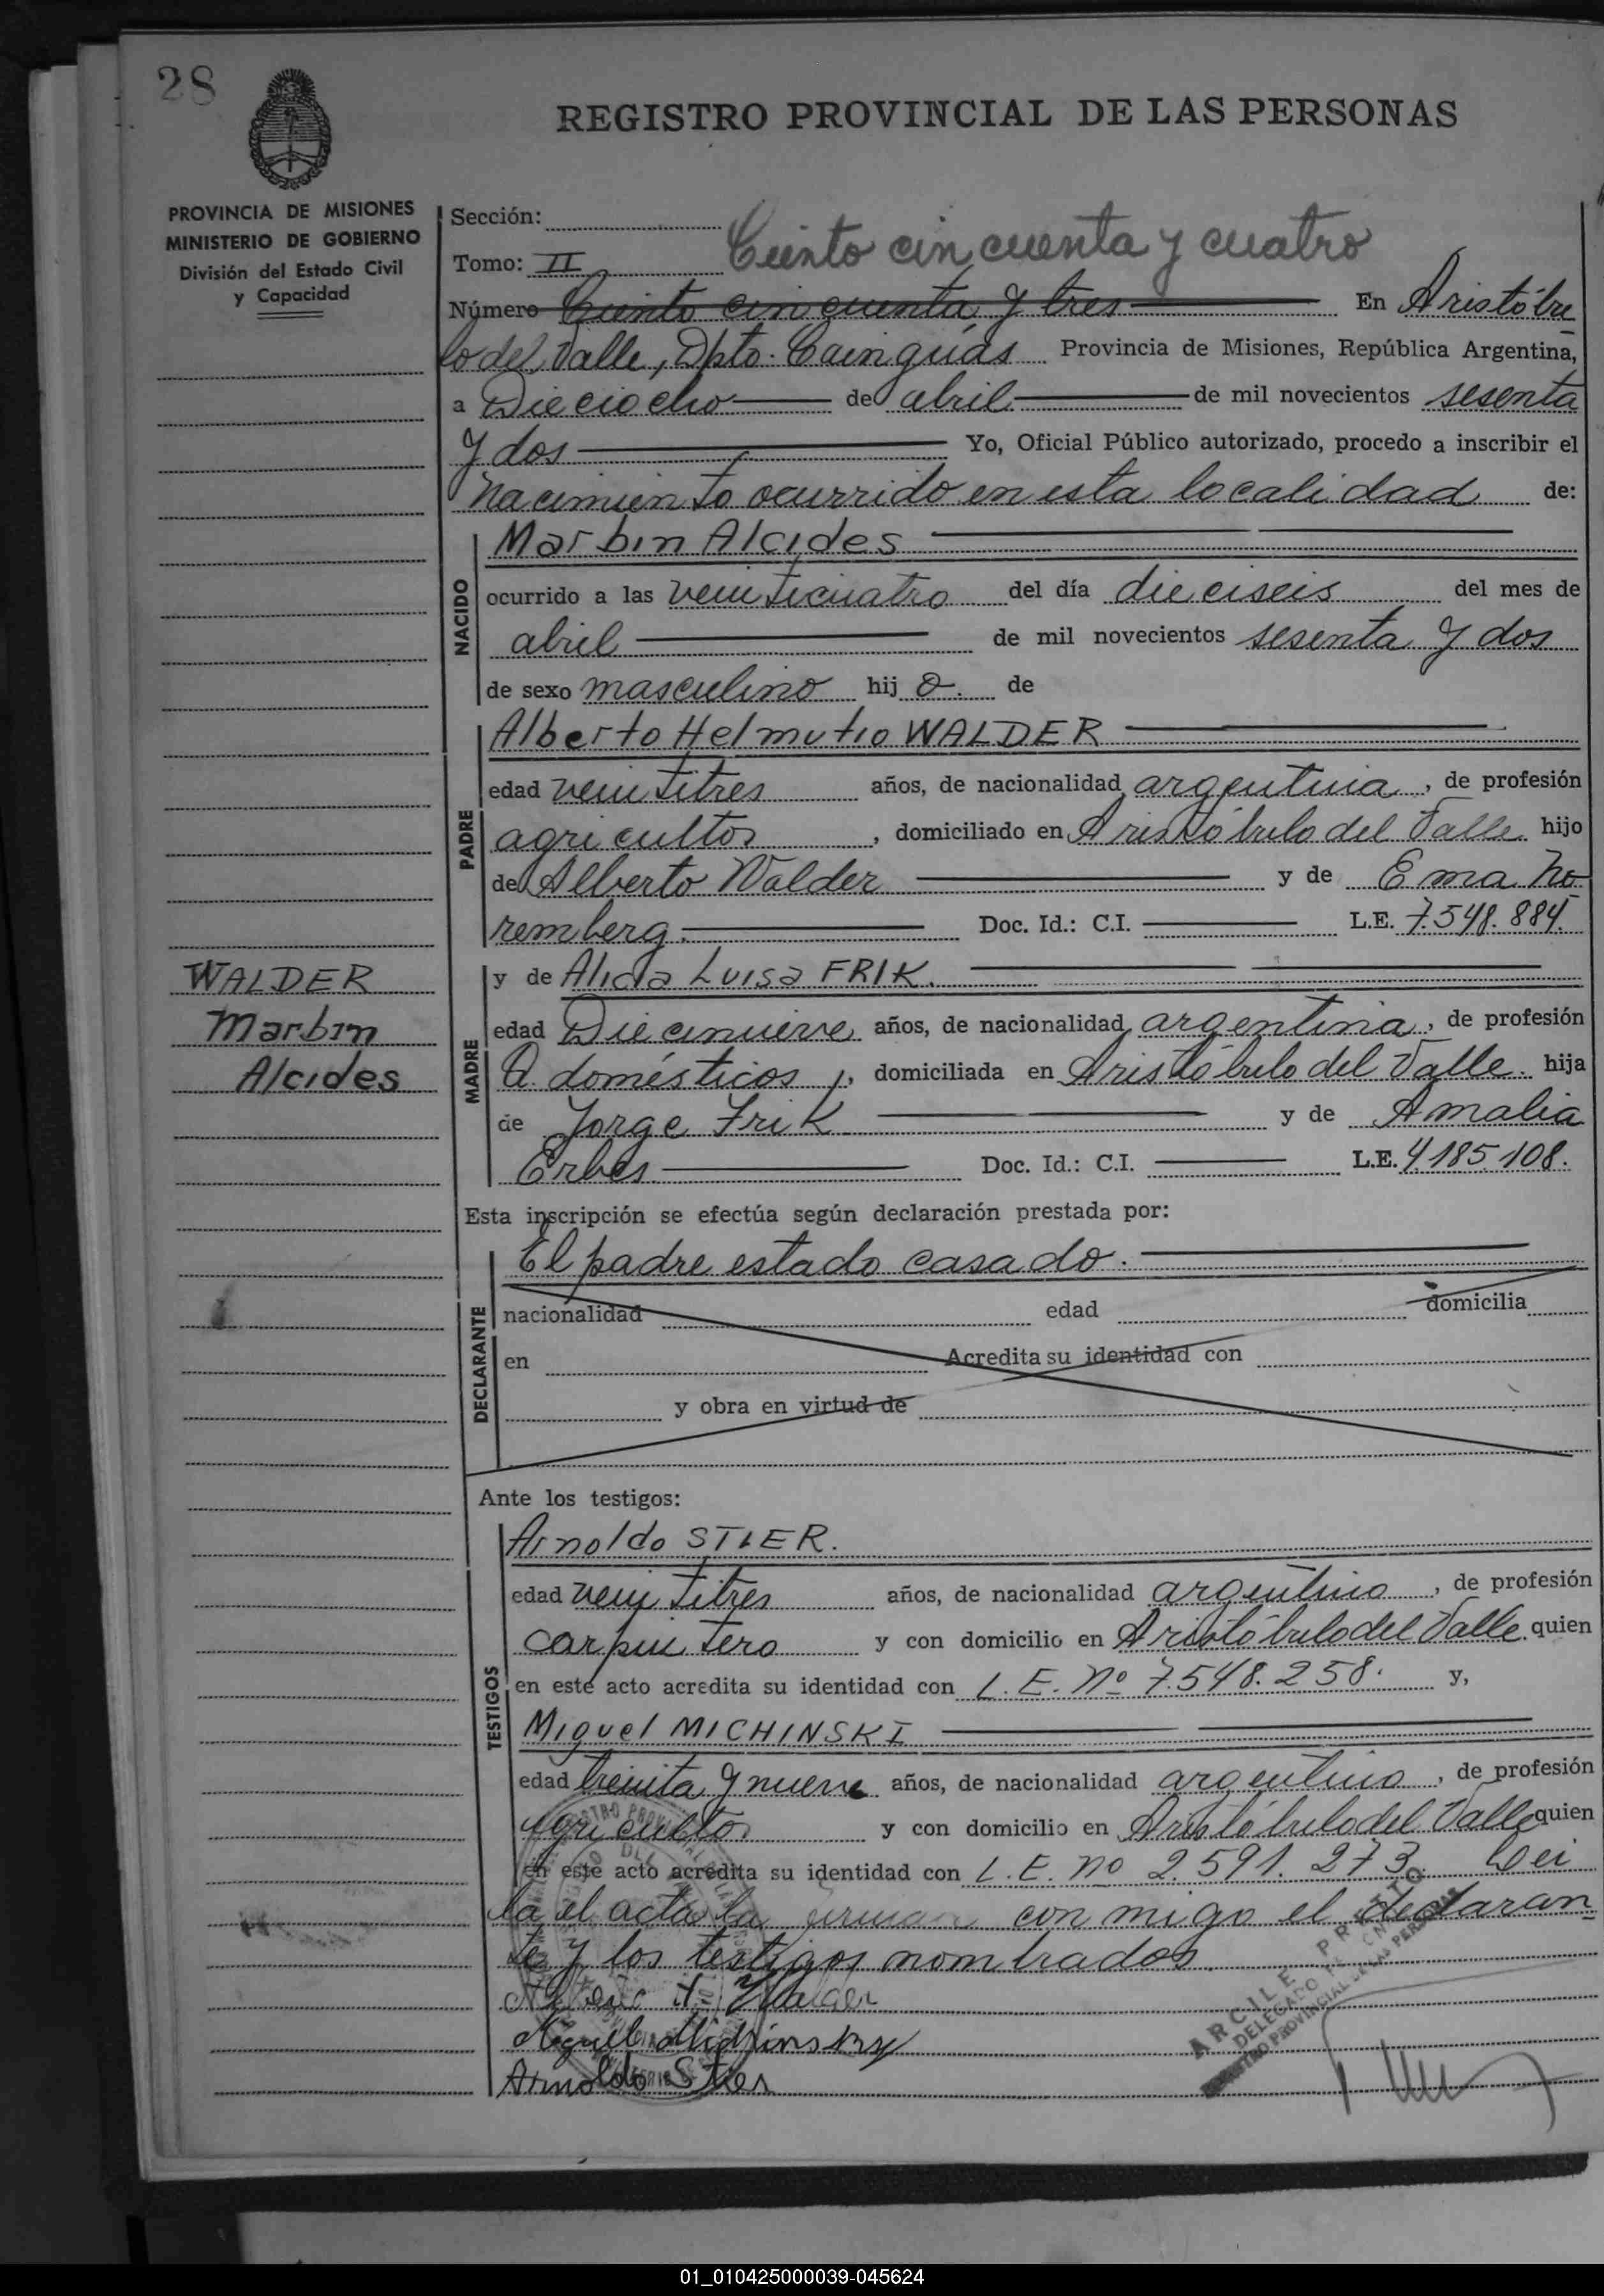 28
REGISTRO PROVINCIAL DE LAS PERSONAS
PROVINCIA DE MISIONES
MINISTERIO DE GOBIERNO
División del Estado Civil
y Capacidad
Sección:
Tomo: II
Ciento cincuenta y cuatro
Número Ciento cincuenta y tres En Aristóbu
lo del Valle, Dpto. Cainguás Provincia de Misiones, República Argentina,
a Dieciocho de abril de mil novecientos sesenta
y dos Yo, Oficial Público autorizado, procedo a inscribir el
nacimiento ocurrido en esta localidad de:
NACIDO
Marbin Alcides
ocurrido a las veinticuatro del día dieciseis del mes de
abril de mil novecientos sesenta y dos
de sexo masculino hijo. de
PADRE
Alberto Helmutio WALDER
edad veintitres años, de nacionalidad argentina, de profesión
agricultor, domiciliado en Aristóbulo del Valle hijo
de Alberto Walder y de Ema No
remberg. Doc. Id.: C.I. L.E. 7.548.884.
WALDER
Marbin
Alcides
MADRE
y de Alicia Luisa FRIK.
edad Diecinueve años, de nacionalidad argentina, de profesión
Q. domésticos, domiciliada en Aristóbulo del Valle. hija
de Jorge Frik y de Amalia
Erbes Doc. Id.: C.I. L.E. 4.185.108.
Esta inscripción se efectúa según declaración prestada por:
DECLARANTE
El padre estado casado.
nacionalidad edad domicilia
en Acredita su identidad con
y obra en virtud de
Ante los testigos:
TESTIGOS
Arnoldo STIER.
edad veintitres años, de nacionalidad argentino, de profesión
carpintero y con domicilio en Aristóbulo del Valle. quien
en este acto acredita su identidad con L.E. Nº 7.548.258. y,
Miguel MICHINSKI
edad treinta y nueve años, de nacionalidad argentino, de profesión
agricultor y con domicilio en Aristóbulo del Valle quien
en este acto acredita su identidad con L.E. Nº 2.591.273. Lei
da el acta la firman conmigo el declaran
te y los testigos nombrados.
Walder
Miguel
Arnoldo Stier
ARCILE PRIETO
DELEGADO
REGISTRO PROVINCIAL DE LAS PERSONAS
01_010425000039-045624